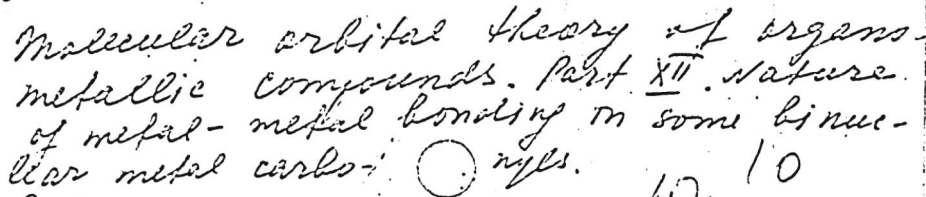 Molecular orbital theory of organo-
metallic compounds. Part XII. Nature
of metal-metal bonding in some binuc-
lear metal carbo- nyls.
10